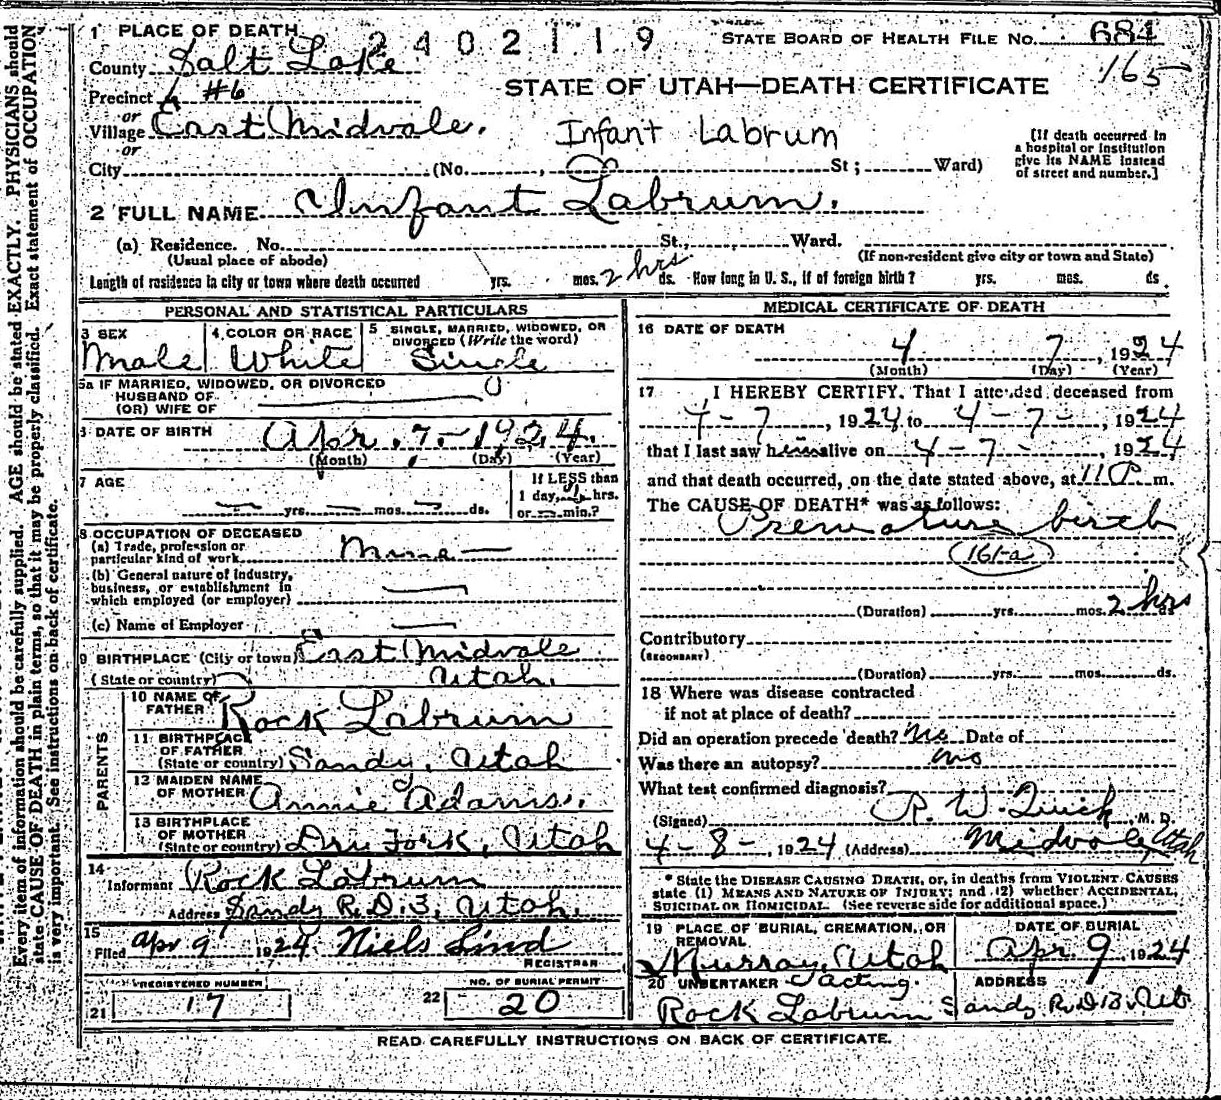 1 PLACE OF DEATH
2402119
STATE BOARD OF HEALTH FILE No. 684
165
County Salt Lake
STATE OF UTAH—DEATH CERTIFICATE
Precinct #6
or
Village East Midvale.
Infant Labrum
or
City (No. , St; Ward)
[If death occurred in
a hospital or institution
give its NAME instead
of street and number.]
2 FULL NAME Infant Labrum.
(a) Residence. No. St., Ward.
(Usual place of abode)
(If non-resident give city or town and State)
Length of residence in city or town where death occurred yrs. mos. 2 hrs ds. How long in U. S., if of foreign birth? yrs. mos. ds.
PERSONAL AND STATISTICAL PARTICULARS
3 SEX
Male
4 COLOR OR RACE
White
5 SINGLE, MARRIED, WIDOWED, OR
DIVORCED (Write the word)
Single
5a IF MARRIED, WIDOWED, OR DIVORCED
HUSBAND OF
(OR) WIFE OF
6 DATE OF BIRTH Apr. 7.-1924.
(Month) (Day) (Year)
7 AGE
yrs. mos. ds.
If LESS than
1 day, hrs.
or min.?
8 OCCUPATION OF DECEASED
(a) Trade, profession or
particular kind of work
(b) General nature of industry,
business, or establishment in
which employed (or employer)
(c) Name of Employer
9 BIRTHPLACE (City or town) East Midvale
(State or country) Utah.
PARENTS
10 NAME OF
FATHER Rock Labrum
11 BIRTHPLACE
OF FATHER
(State or country) Sandy, Utah
12 MAIDEN NAME
OF MOTHER Annie Adams.
13 BIRTHPLACE
OF MOTHER
(State or country) Dry Fork, Utah
14
Informant Rock Labrum
Address Sandy R.D.3, Utah.
15
Filed Apr 9 1924 Niels Lind
REGISTRAR
REGISTERED NUMBER
21 17
NO. OF BURIAL PERMIT
22 20
MEDICAL CERTIFICATE OF DEATH
16 DATE OF DEATH
4 7, 1924
(Month) (Day) (Year)
17 I HEREBY CERTIFY, That I attended deceased from
4-7, 1924 to 4-7-, 1924
that I last saw him alive on 4-7-, 1924
and that death occurred, on the date stated above, at 11 P m.
The CAUSE OF DEATH* was as follows:
Premature birth
161-a
(Duration) yrs. mos. 2 hrs ds
Contributory
(SECONDARY)
(Duration) yrs. mos. ds.
18 Where was disease contracted
if not at place of death?
Did an operation precede death? No Date of
Was there an autopsy? no
What test confirmed diagnosis?
(Signed) R. W. Quick, M. D.
4-8-, 1924 (Address) Midvale, Utah
* State the DISEASE CAUSING DEATH, or, in deaths from VIOLENT CAUSES
state (1) MEANS AND NATURE OF INJURY; and (2) whether ACCIDENTAL,
SUICIDAL OR HOMICIDAL. (See reverse side for additional space.)
19 PLACE OF BURIAL, CREMATION, OR
REMOVAL
Murray, Utah
DATE OF BURIAL
Apr. 9, 1924
20 UNDERTAKER acting.
Rock Labrum
ADDRESS
Sandy R.D.3. Ut
READ CAREFULLY INSTRUCTIONS ON BACK OF CERTIFICATE.
Every item of information should be carefully supplied. AGE should be stated EXACTLY. PHYSICIANS should
state CAUSE OF DEATH in plain terms, so that it may be properly classified. Exact statement of OCCUPATION
is very important. See instructions on back of certificate.